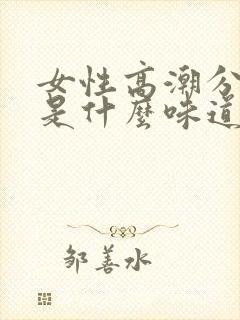 女性高潮分
是什麼味道
邹善水